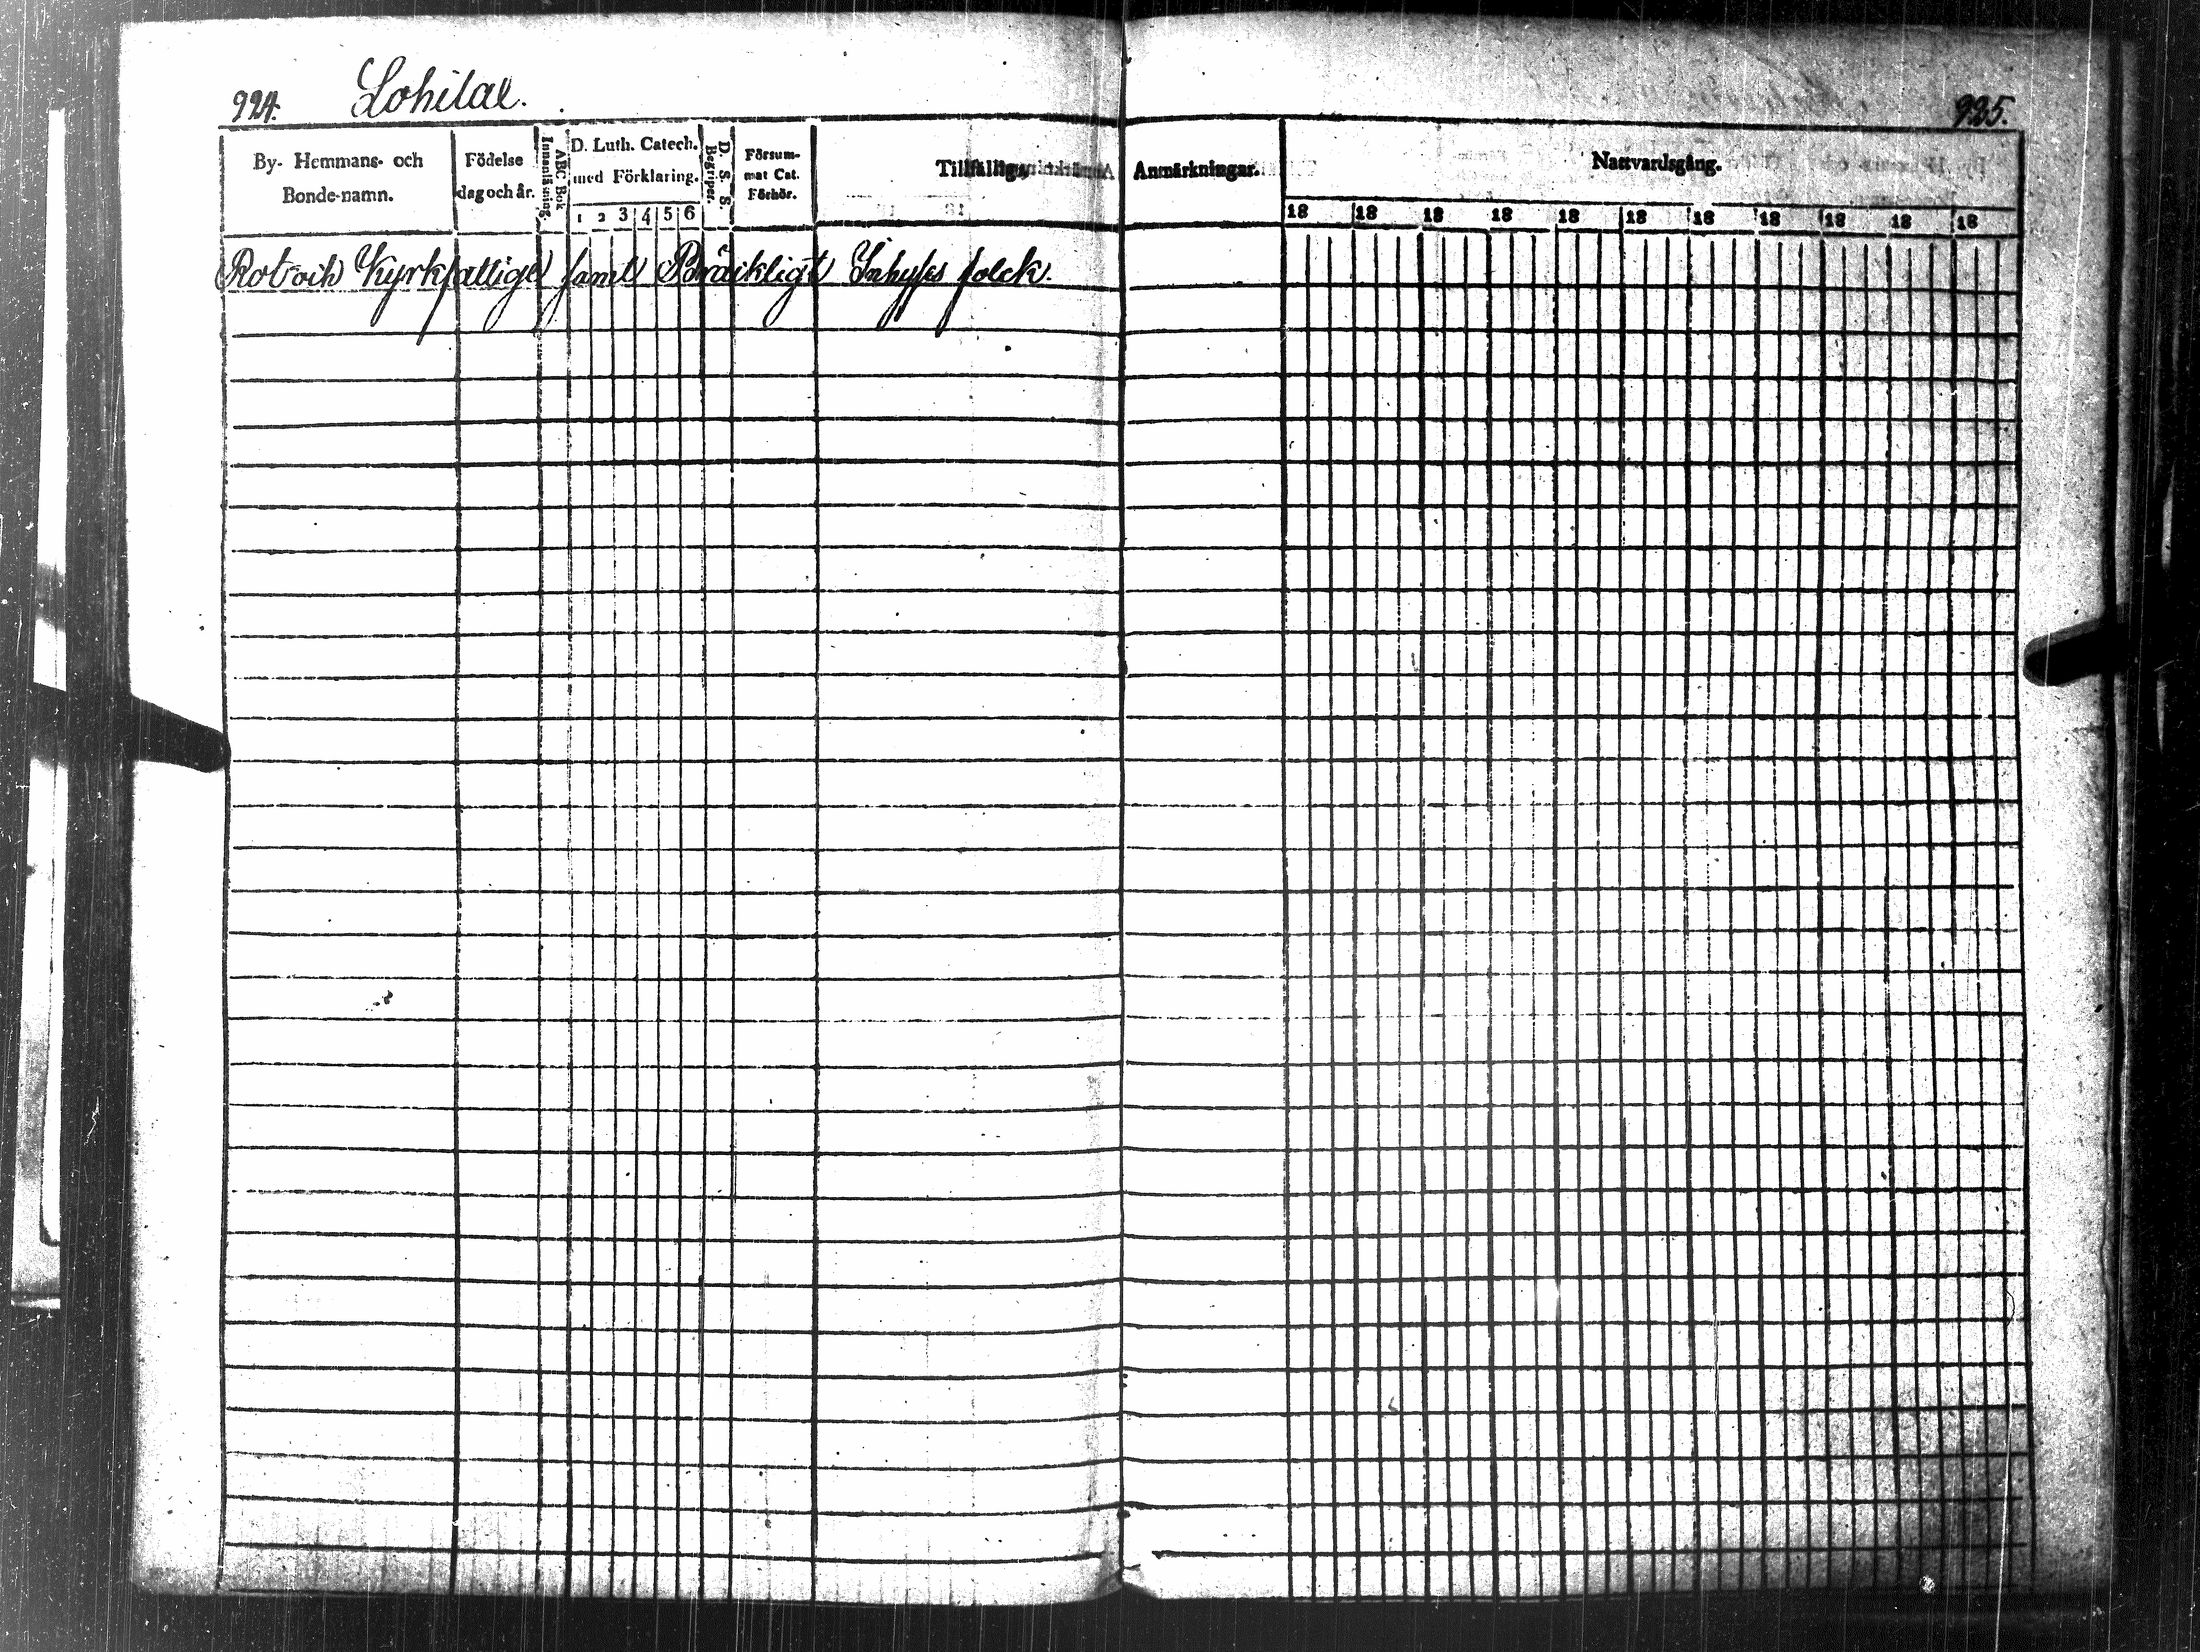 924. Lohilax.
925.
By- Hemmans- och
Bonde-namn.
Födelse
dag och år.
ABC Bok
Innanläsning.
D. Luth. Catech.
med Förklaring.
1 2 3 4 5 6
D. S. S.
Begriper.
Försum-
mat Cat.
Förhör.
Tillfällige
Anmärkningar.
Nattvardsgång.
18 18 18 18 18 18 18 18 18 18 18
Rot och Kyrkfattige samt Bräckligt Inhyses folck.